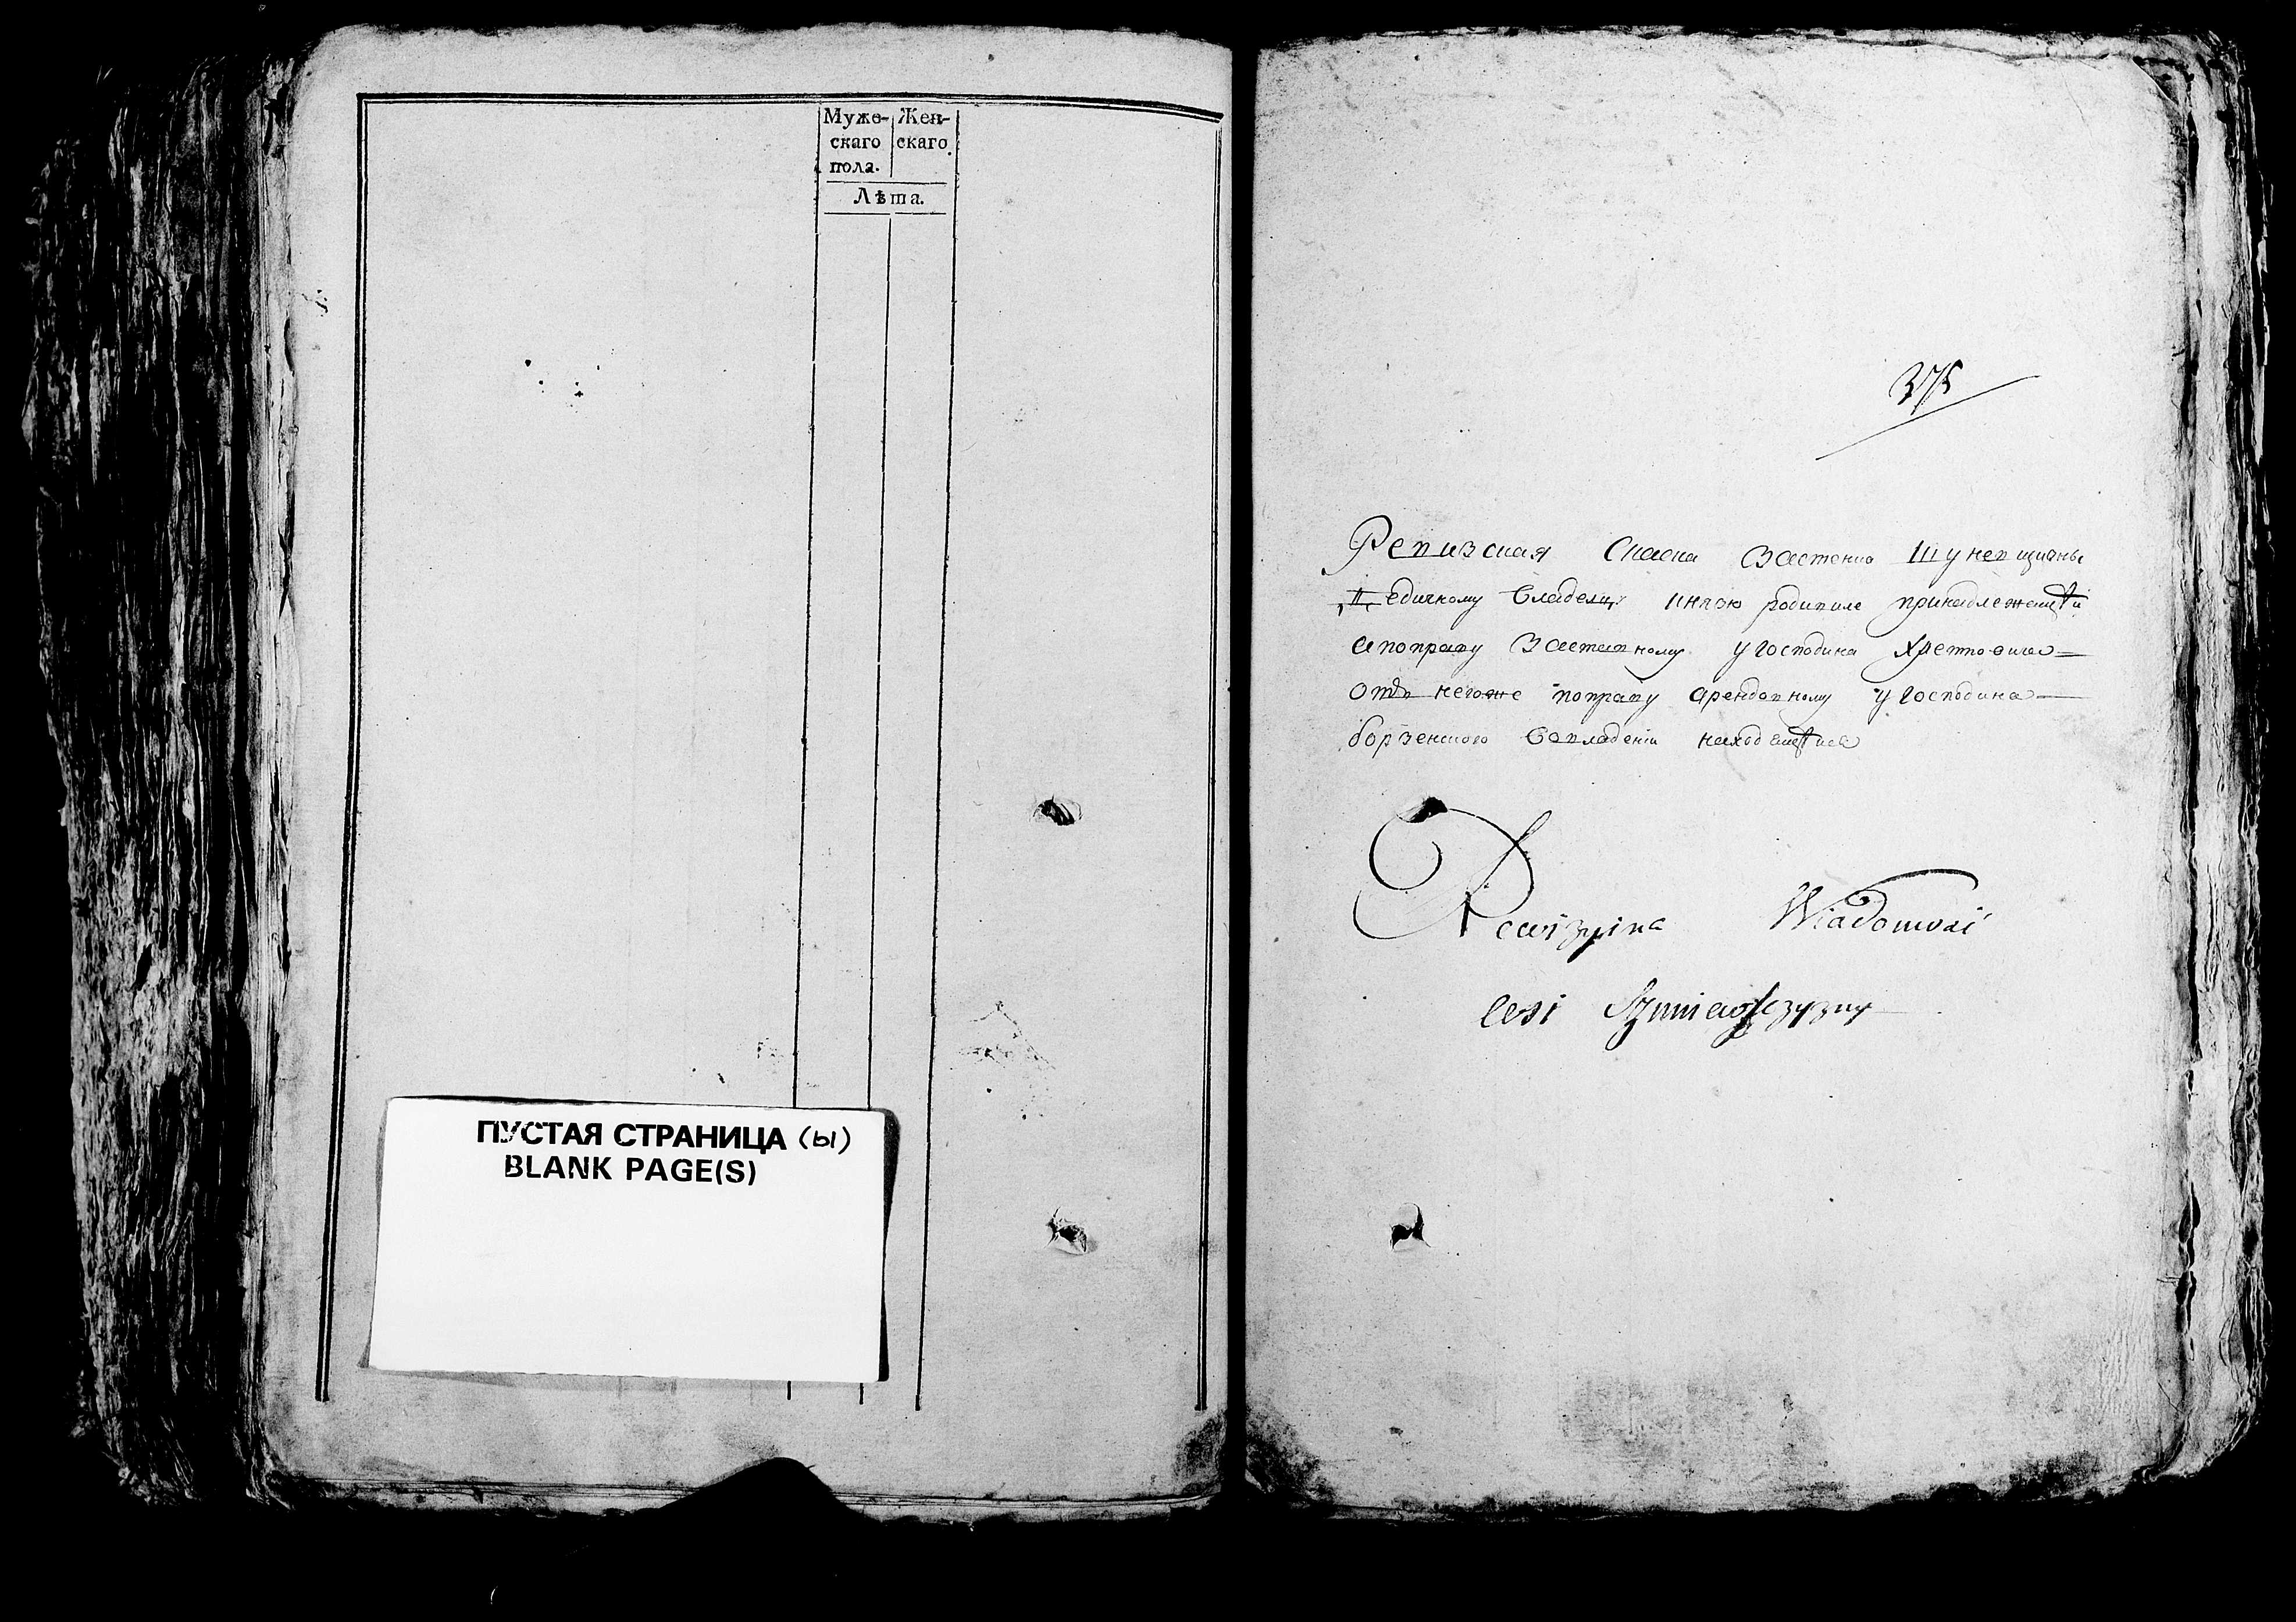 Муже-
скаго
пола.
Жен-
скаго
Лѣта.
ПУСТАЯ СТРАНИЦА (ы)
BLANK PAGE(S)
375
Ревизская Скаска Застенка Шуневщизны
едичному Владельцу князю родивиле принадлежащей
а поправу Заставному у господина Хрептовича
отъ негоже поправу арендовному у господина
борзенского вовладении находящейся
Rewizyina Wiadomość
Wsi Szuniewszczyzny